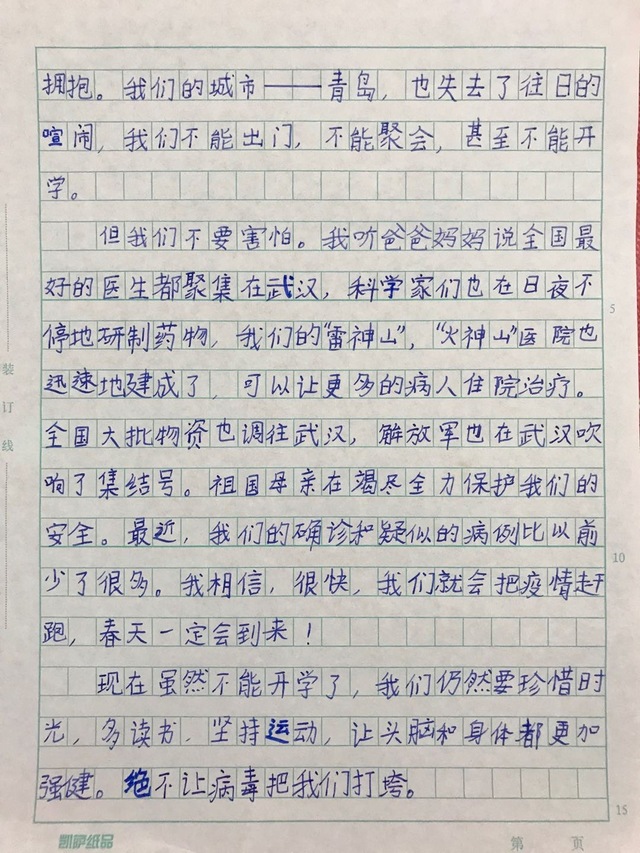 拥抱。我们的城市——青岛，也失去了往日的
喧闹，我们不能出门，不能聚会，甚至不能开
学。
但我们不要害怕。我听爸爸妈妈说全国最
好的医生都聚集在武汉，科学家们也在日夜不
5
停地研制药物，我们的“雷神山”，“火神山”医院也
迅速地建成了，可以让更多的病人住院治疗。
全国大批物资也调往武汉，解放军也在武汉吹
响了集结号。祖国母亲在竭尽全力保护我们的
安全。最近，我们的确诊和疑似的病例比以前
10
少了很多。我相信，很快，我们就会把疫情赶
跑，春天一定会到来！
现在虽然不能开学了，我们仍然要珍惜时
光，多读书，坚持运动，让头脑和身体都更加
强健。绝不让病毒把我们打垮。
15
装
订
线
凯萨纸品
第 页